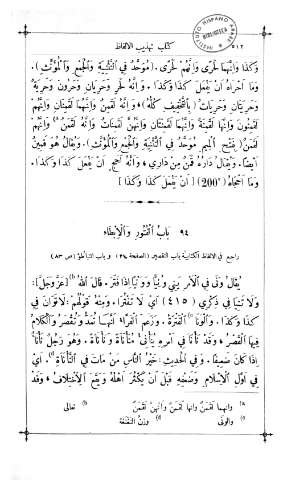 ٥١٢
كتاب تهذيب الالفاظ
INSTITUTO HISPANO ARABE
BIBLIOTECA
وَكَذَا وَإِنَّهُمَا لَحَرًى وَإِنَّهُمْ لَحَرًى. (مُوَحَّدٌ فِي ٱلتَّثْنِيَةِ وَٱلْجَمْعِ وَٱلْمُؤَنَّثِ).
وَمَا أَحْرَاهُ أَنْ يَفْعَلَ كَذَا وَكَذَا. وَإِنَّهُ لَحَرٍ وَحَرِيَانِ وَحَرُونَ وَحَرِيَةٌ
وَحَرِيَتَانِ وَحَرِيَاتٌ (بِٱلتَّخْفِيفِ كُلُّهُ). وَإِنَّهُ لَقَمِنٌ وَإِنَّهُمَا لَقَمِنَانِ وَإِنَّهُمْ
لَقَمِنُونَ وَإِنَّهَا لَقَمِنَةٌ وَإِنَّهُمَا لَقَمِنَتَانِ وَإِنَّهُنَّ لَقَمِنَاتٌ وَإِنَّهُ لَقَمَنٌ وَإِنَّهُمْ
لَقَمَنٌ (بِفَتْحِ ٱلْمِيمِ مُوَحَّدٌ فِي ٱلتَّثْنِيَةِ وَٱلْجَمْعِ وَٱلْمُؤَنَّثِ). وَيُقَالُ هُوَ قَمِينٌ
أَيْضًا. وَيُقَالُ دَارُهُ قَمَنٌ مِنْ دَارِي. وَإِنَّهُ لَحَجٍ أَنْ يَفْعَلَ كَذَا وَكَذَا.
وَمَا أَحْجَاهُ (200ʳ) [أَنْ يَفْعَلَ كَذَا وَكَذَا]
٩٤ بَابُ ٱلْفُتُورِ وَٱلْإِبْطَاءِ
راجع في الالفاظ الكتابية باب التقصير (الصفحة ٣٤) و باب التباطؤ (ص ٨٣)
يُقَالُ وَنَى فِي ٱلْأَمْرِ يَنِي وَنْيًا وَوَنًى إِذَا فَتَرَ. قَالَ ٱللهُ [عَزَّ وَجَلَّ]:
وَلَا تَنِيَا فِي ذِكْرِي (٤١٥) أَيْ لَا تَفْتُرَا. وَمِنْهُ قَوْلُهُمْ: لَا وَانٍ فِي
كَذَا وَكَذَا. وَٱلْوَنَا ٱلْفَتْرَةُ. وَزَعَمَ ٱلْفَرَّا أَنَّهَا تُمَدُّ وَتُقْصَرُ وَٱلْكَلَامُ
فِيهَا ٱلْقَصْرُ. وَقَدْ تَأْنَأَ فِي أَمْرِهِ يُتَأْنِئُ مُتَأْنَأَةً وَتَأْنَأَةً. وَهُوَ رَجُلٌ تَأْنَأٌ
إِذَا كَانَ ضَعِيفًا. وَفِي ٱلْحَدِيثِ: خَيْرُ ٱلنَّاسِ مَنْ مَاتَ فِي ٱلنَّأْنَأَةِ أَيْ
فِي أَوَّلِ ٱلْإِسْلَامِ وَضَعْفِهِ قَبْلَ أَنْ يَكْثُرَ أَهْلُهُ وَيَقَعَ ٱلِٱخْتِلَافُ. وَقَدْ
وانهما لَقَمَنٌ وانها لَقَمَنٌ وانهنَّ لَقَمَنٌ
تعالى
والونَى
وزن النَّعْنَعَة